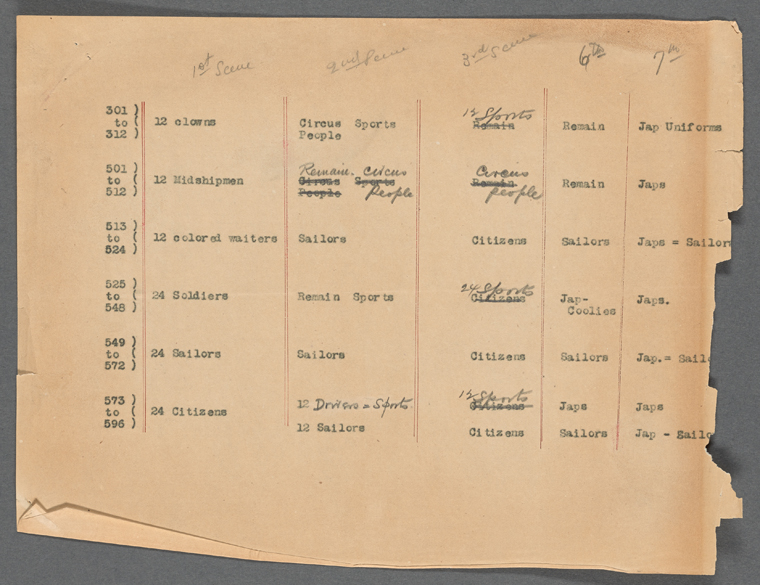 1st Scene 2nd Scene 3rd Scene 6th 7th
301 ) 12 Sports
to ( 12 clowns Circus Sports Remain Remain Jap Uniforms
312 ) People
501 ) Remain. Circus Circus
to ( 12 Midshipmen Circus Sports Remain Remain Japs
512 ) People People people
513 )
to ( 12 colored waiters Sailors Citizens Sailors Japs = Sailors
524 )
525 ) 24 Sports
to ( 24 Soldiers Remain Sports Citizens Jap- Japs.
548 ) Coolies
549 )
to ( 24 Sailors Sailors Citizens Sailors Jap.= Sail
572 )
573 ) 12 Drivers = Sports 12 Sports
to ( 24 Citizens Citizens Japs Japs
596 ) 12 Sailors Citizens Sailors Jap - Sailo